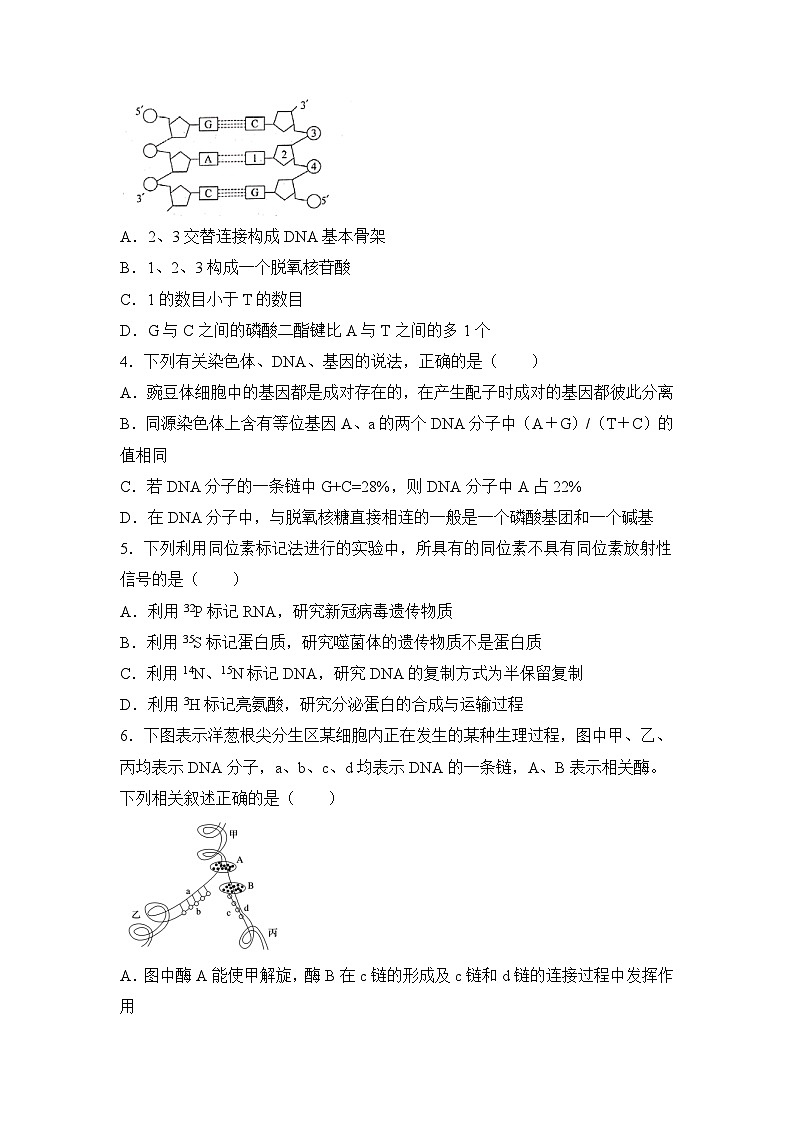 5′ G C 3′
3
A 1 2
4
3′ C G 5′
A．2、3交替连接构成DNA基本骨架
B．1、2、3构成一个脱氧核苷酸
C．1的数目小于T的数目
D．G与C之间的磷酸二酯键比A与T之间的多1个
4．下列有关染色体、DNA、基因的说法，正确的是（　　）
A．豌豆体细胞中的基因都是成对存在的，在产生配子时成对的基因都彼此分离
B．同源染色体上含有等位基因A、a的两个DNA分子中（A＋G）/（T＋C）的
值相同
C．若DNA分子的一条链中G+C=28%，则DNA分子中A占22%
D．在DNA分子中，与脱氧核糖直接相连的一般是一个磷酸基团和一个碱基
5．下列利用同位素标记法进行的实验中，所具有的同位素不具有同位素放射性
信号的是（　　）
A．利用³²P标记RNA，研究新冠病毒遗传物质
B．利用³⁵S标记蛋白质，研究噬菌体的遗传物质不是蛋白质
C．利用¹⁴N、¹⁵N标记DNA，研究DNA的复制方式为半保留复制
D．利用³H标记亮氨酸，研究分泌蛋白的合成与运输过程
6．下图表示洋葱根尖分生区某细胞内正在发生的某种生理过程，图中甲、乙、
丙均表示DNA分子，a、b、c、d均表示DNA的一条链，A、B表示相关酶。
下列相关叙述正确的是（　　）
甲
A
a B
乙 b c d
丙
A．图中酶A能使甲解旋，酶B在c链的形成及c链和d链的连接过程中发挥作
用